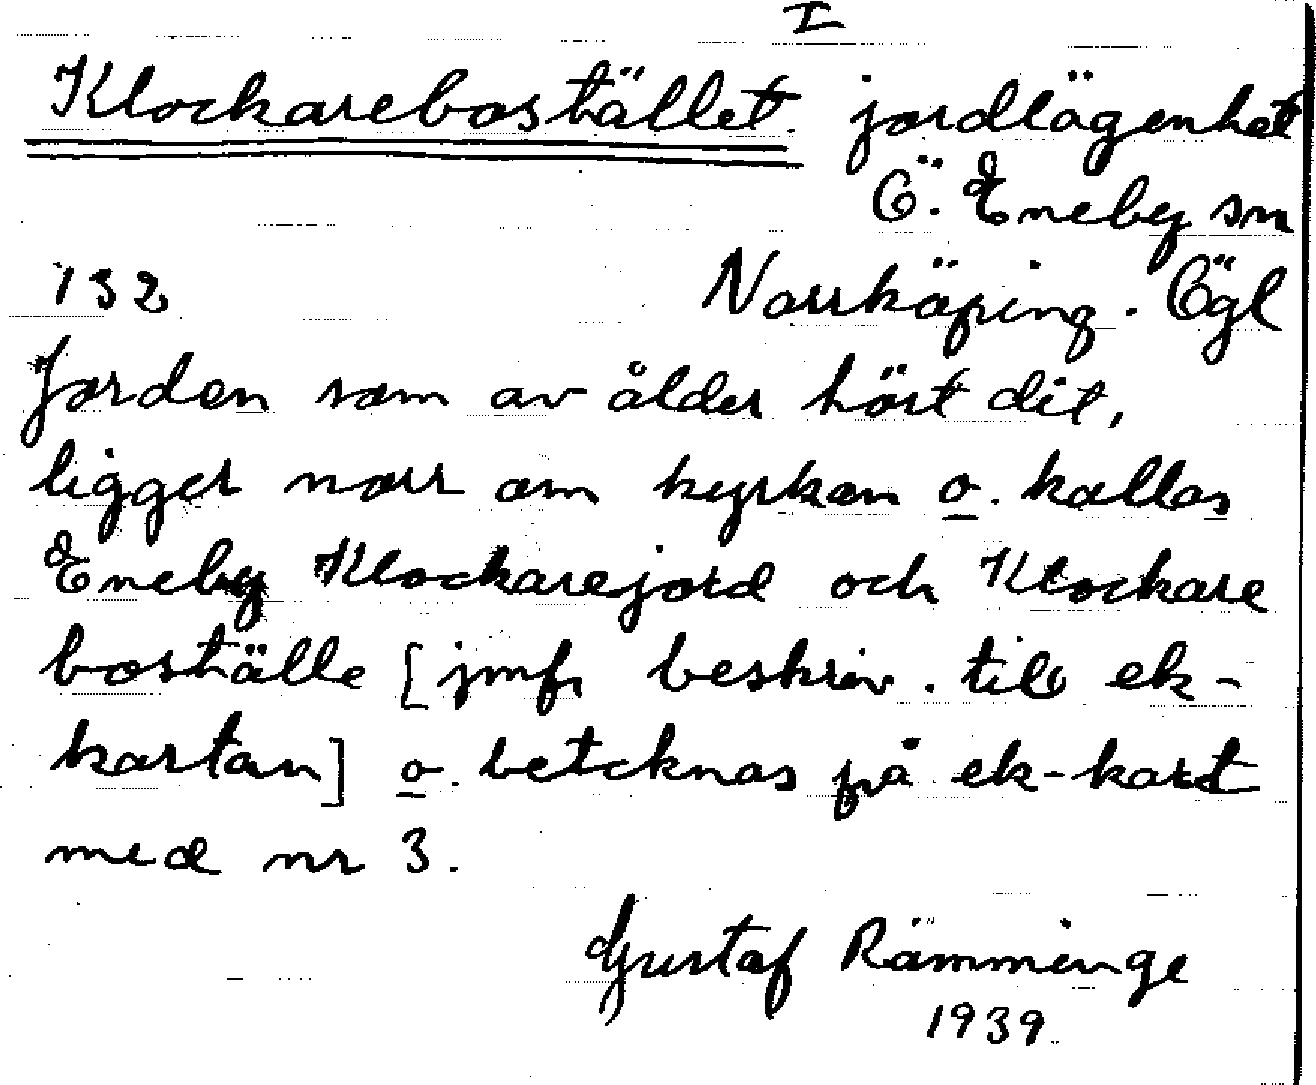 I
Klockarebostället. jordlägenhet
Ö. Eneby sn
132 Norrköping. Ögl
Jorden som av ålder hört dit,
ligger norr om kyrkan o. kallas
Eneby Klockarejord och Klockare
boställe [jmfr beskriv. till ek-
kartan] o. betecknas på ek-kart
med nr 3.
Gustaf Rämminge
1939.